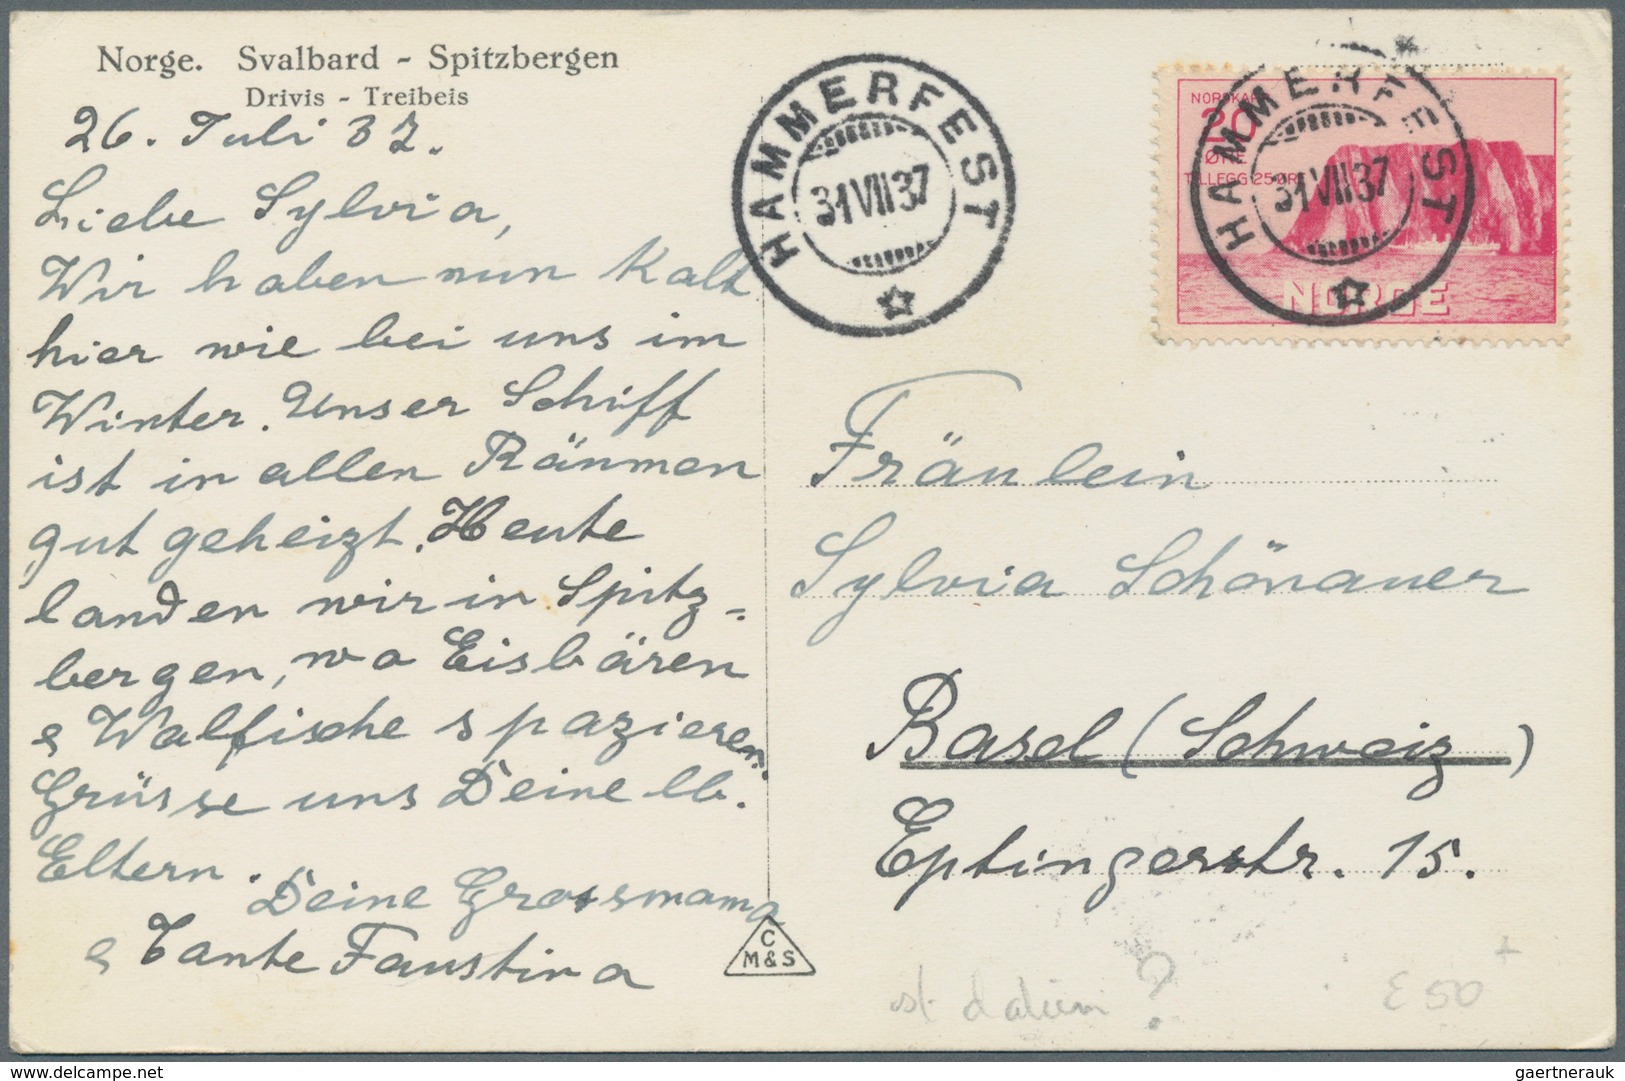 Norge. Svalbard - Spitzbergen
Drivis - Treibeis
26. Juli 37.
Liebe Sylvia,
Wir haben nun Kalt
hier wie bei uns im
Winter. Unser Schiff
ist in allen Räumen
gut geheizt. Heute
landen wir in Spitz=
bergen, wo Eisbären
& Walfische spazieren.
Grüsse uns Deine lb.
Eltern.
Deine Grossmama
& Tante Faustina
C
M&S
HAMMERFEST
31 VII 37
NORDKAPP
20
ØRE
TILLEGG 25 ØRE
NORGE
HAMMERFEST
31 VII 37
Fräulein
Sylvia Schönauer
Basel (Schweiz)
Eptingerstr. 15.
£ 50
gaertnerauk / delcampe.net